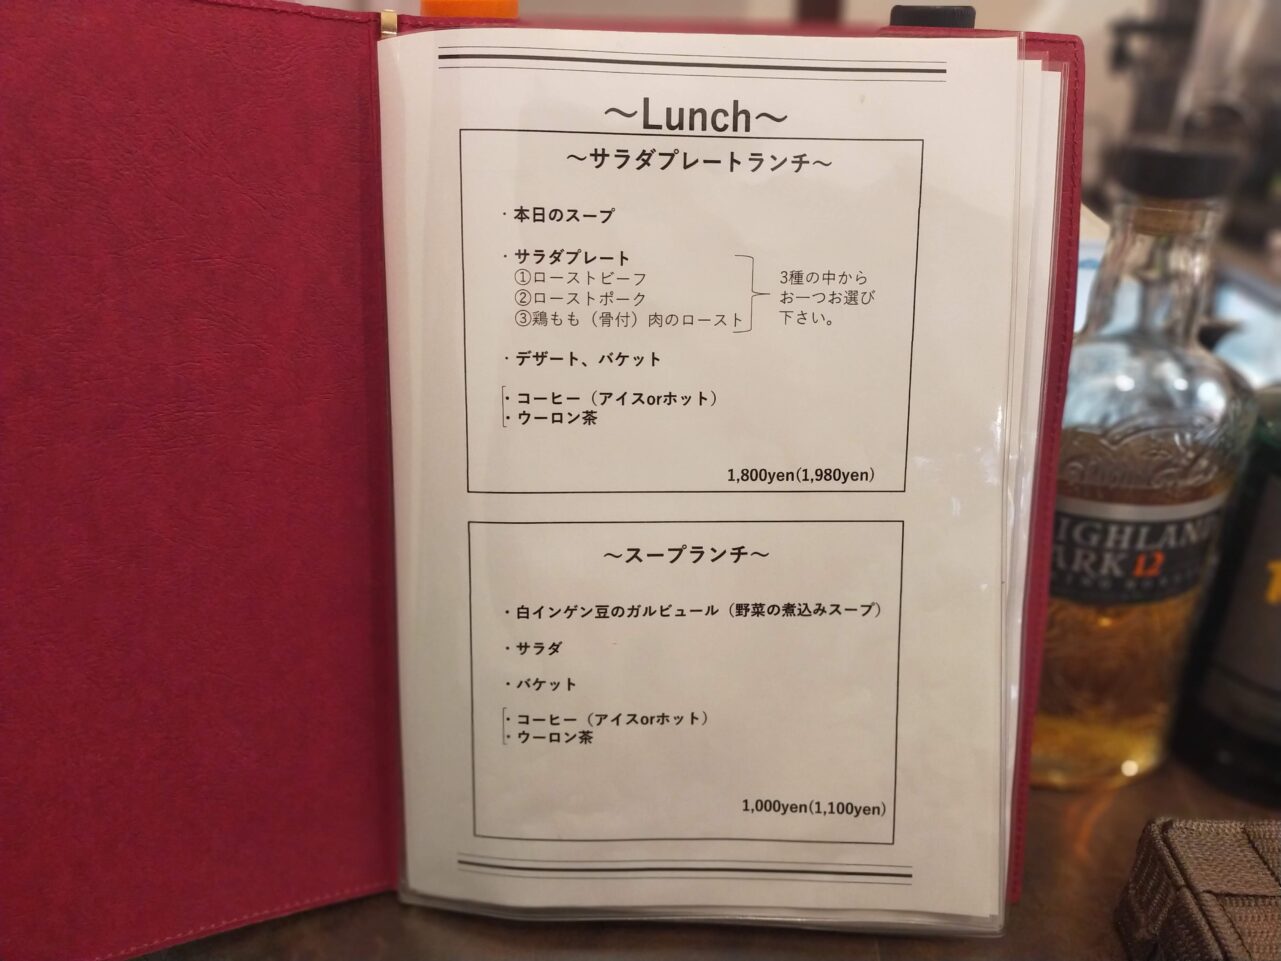 ～Lunch～
～サラダプレートランチ～
・本日のスープ
・サラダプレート
①ローストビーフ
②ローストポーク
③鶏もも（骨付）肉のロースト
3種の中から
お一つお選び
下さい。
・デザート、バケット
・コーヒー（アイスorホット）
・ウーロン茶
1,800yen(1,980yen)
～スープランチ～
・白インゲン豆のガルビュール（野菜の煮込みスープ）
・サラダ
・バケット
・コーヒー（アイスorホット）
・ウーロン茶
1,000yen(1,100yen)
HIGHLAND
PARK 12